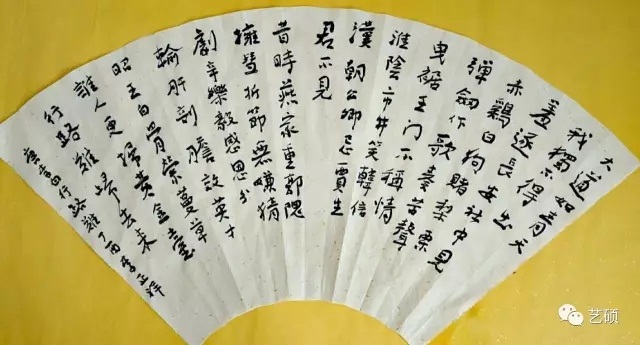 大道如青天
我獨不得出
羞逐長安社中見
赤鷄白狗賭梨栗
彈劍作歌奏苦聲
曳裾王门不稱情
淮陰市井笑韓信
漢朝公卿忌賈生
君不見
昔時燕家重郭隗
擁篲折節無嫌猜
劇辛樂毅感恩分
輸肝剖膽效英才
昭王白骨縈蔓草
誰人更掃黃金臺
行路難歸去來
李白行路難丁酉李正祥
艺硕